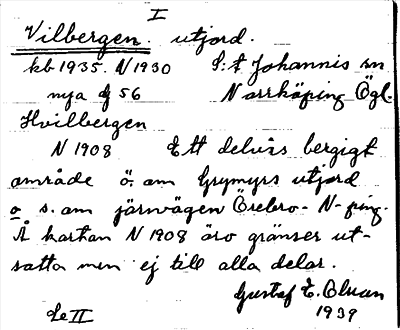 I
Vilbergen. utjord.
kb 1935. N 1930 S:t Johannis sn
nya 56 Norrköping Ögl.
Hvilbergen
N 1908 Ett delvis bergigt
område ö. om Grymyrs utjord
o s. om järnvägen Örebro - N-ping.
Å kartan N 1908 äro gränser ut-
satta men ej till alla delar.
Gustaf E.
1939
Le II